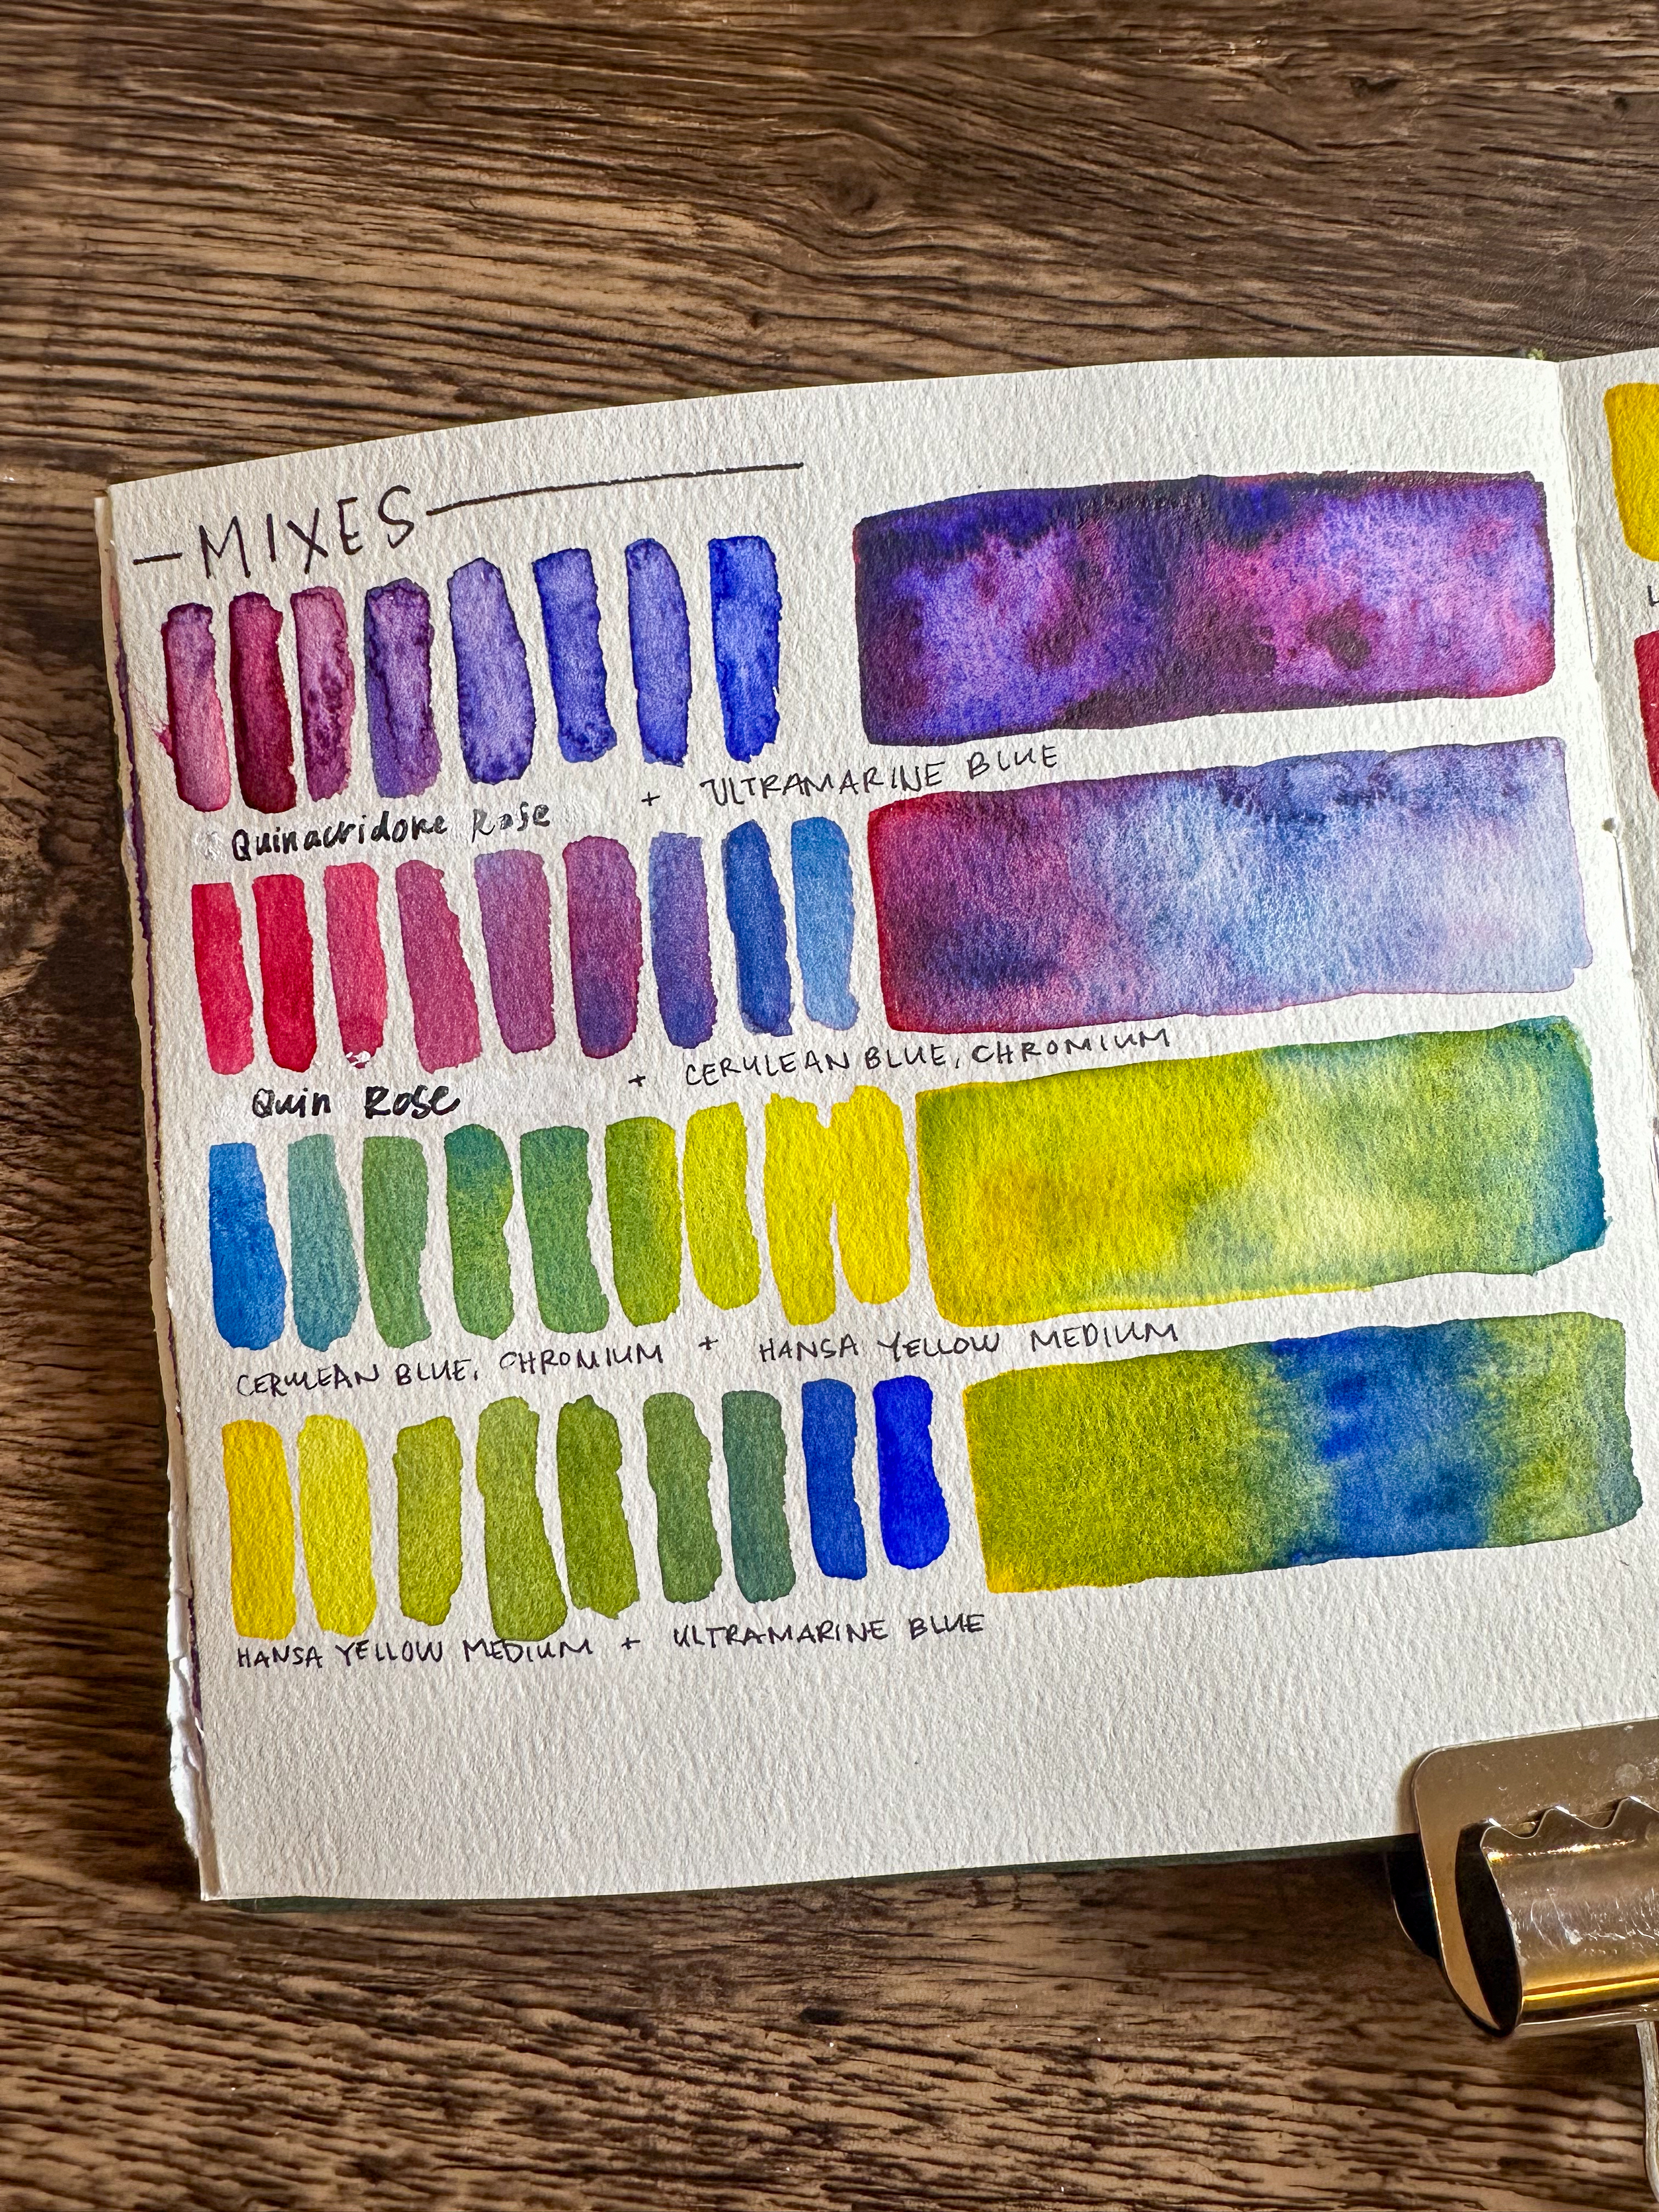 —MIXES—
Quinacridone Rose + ULTRAMARINE BLUE
Quin Rose + CERULEAN BLUE, CHROMIUM
CERULEAN BLUE, CHROMIUM + HANSA YELLOW MEDIUM
HANSA YELLOW MEDIUM + ULTRAMARINE BLUE